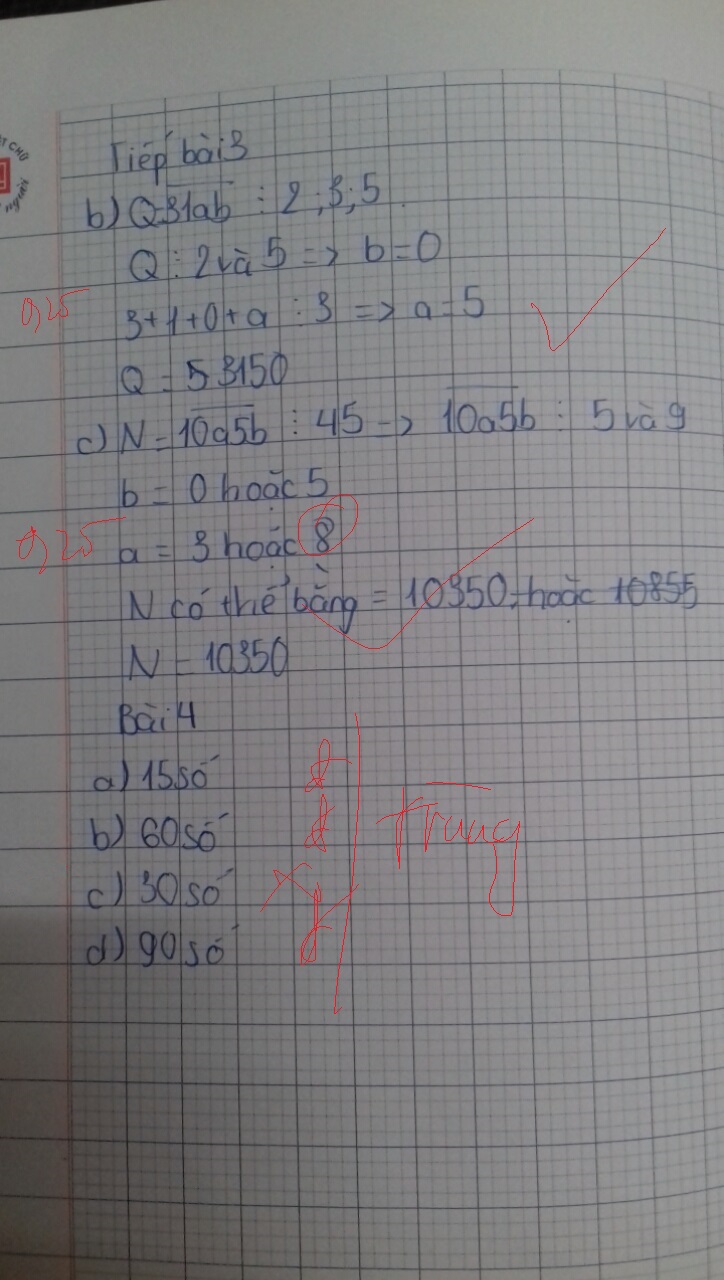 Tiếp bài 3
b) Q=31ab ⋮ 2;3;5
Q ⋮ 2 và 5 => b=0
0,25
3+1+0+a ⋮ 3 => a=5
Q = 53150
c) N=10a5b ⋮ 45 -> 10a5b ⋮ 5 và 9
b = 0 hoặc 5
0,25
a = 3 hoặc 8
N có thể bằng = 10350; hoặc 10855
N = 10350
Bài 4
a) 15 số
b) 60 số
Trung
c) 30 số
d) 90 số